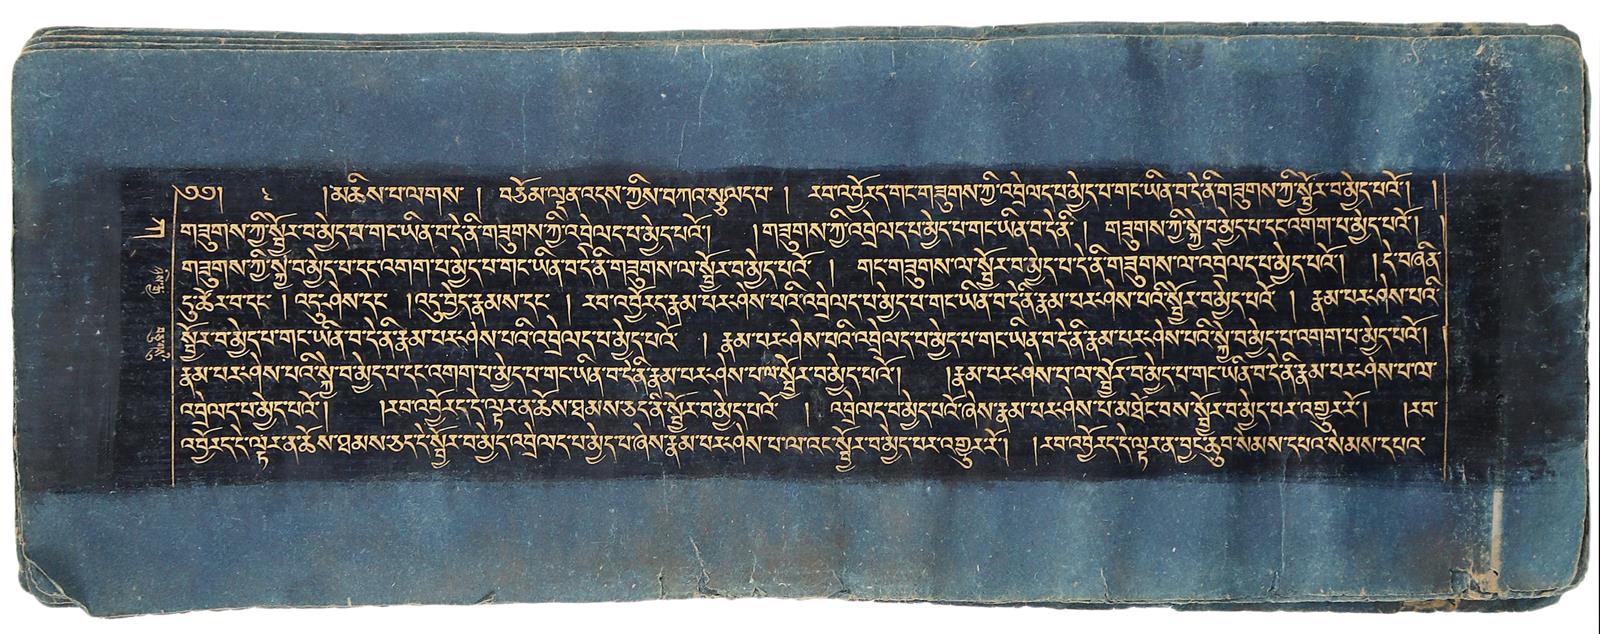 ༄༅། ། །མཆིས་པ་ལགས། །བཅོམ་ལྡན་འདས་ཀྱིས་བཀའ་སྩལད་པ། །རབ་འབྱོརད་གང་གཟུགས་ཀྱི་འབྲེལད་པ་མྱེད་པ་གང་ཡིན་བ་དེ་ནི་གཟུགས་ཀྱི་སྦྱོར་བ་མྱེད་པའོ། །
གཟུགས་ཀྱི་སྦྱོར་བ་མྱེད་པ་གང་ཡིན་བ་དེ་ནི་གཟུགས་ཀྱི་འབྲེལད་པ་མྱེད་པའོ། །གཟུགས་ཀྱི་འབྲེལད་པ་མྱེད་པ་གང་ཡིན་བ་དེ་ནི། གཟུགས་ཀྱི་སྐྱེ་བ་མྱེད་པ་དང་འགག་པ་མྱེད་པའོ། །
གཟུགས་ཀྱི་སྐྱེ་བ་མྱེད་པ་དང་འགག་པ་མྱེད་པ་གང་ཡིན་བ་དེ་ནི་གཟུགས་ལ་སྦྱོར་བ་མྱེད་པའོ། གང་གཟུགས་ལ་སྦྱོར་བ་མྱེད་པ་དེ་ནི་གཟུགས་ལ་འབྲེལད་པ་མྱེད་པའོ། །དེ་བཞིན་
དུ་ཚོར་བ་དང་། །འདུ་ཤེས་དང་། །འདུ་བྱེད་རྣམས་དང་། རབ་འབྱོརད་རྣམ་པར་ཤེས་པའི་འབྲེལད་པ་མྱེད་པ་གང་ཡིན་བ་དེ་ནི་རྣམ་པར་ཤེས་པའི་སྦྱོར་བ་མྱེད་པའོ། རྣམ་པར་ཤེས་པའི་
སྦྱོར་བ་མྱེད་པ་གང་ཡིན་བ་དེ་ནི་རྣམ་པར་ཤེས་པའི་འབྲེལད་པ་མྱེད་པའོ། རྣམ་པར་ཤེས་པའི་འབྲེལད་པ་མྱེད་པ་གང་ཡིན་བ་དེ་ནི་རྣམ་པར་ཤེས་པའི་སྐྱེ་བ་མྱེད་པ་འགག་པ་མྱེད་པའོ།
རྣམ་པར་ཤེས་པའི་སྐྱེ་བ་མྱེད་པ་དང་འགག་པ་མྱེད་པ་གང་ཡིན་བ་དེ་ནི་རྣམ་པར་ཤེས་པ་ལ་སྦྱོར་བ་མྱེད་པའོ། །རྣམ་པར་ཤེས་པ་ལ་སྦྱོར་བ་མྱེད་པ་གང་ཡིན་བ་དེ་ནི་རྣམ་པར་ཤེས་པ་ལ་
འབྲེལད་པ་མྱེད་པའོ། །རབ་འབྱོརད་དེ་ལྟར་ན་ཆོས་ཐམས་ཅད་ནི་སྦྱོར་བ་མྱེད་པའོ། འབྲེལད་པ་མྱེད་པའོ་ཞེས་རྣམ་པར་ཤེས་པ་མཐོང་བས་སྦྱོར་བ་མྱེད་པར་འགྱུར་རོ། །རབ་
འབྱོརད་དེ་ལྟར་ན་ཆོས་ཐམས་ཅད་དེ་སྦྱོར་བ་མྱེད་འབྲེལད་པ་མྱེད་པ་ཞེས་རྣམ་པར་ཤེས་པ་ལ་འང་སྦྱོར་བ་མྱེད་པར་འགྱུར་རོ། །རབ་འབྱོརད་དེ་ལྟར་ན་བྱང་ཆུབ་སེམས་དཔའ་སེམས་དཔའ་
ཀ